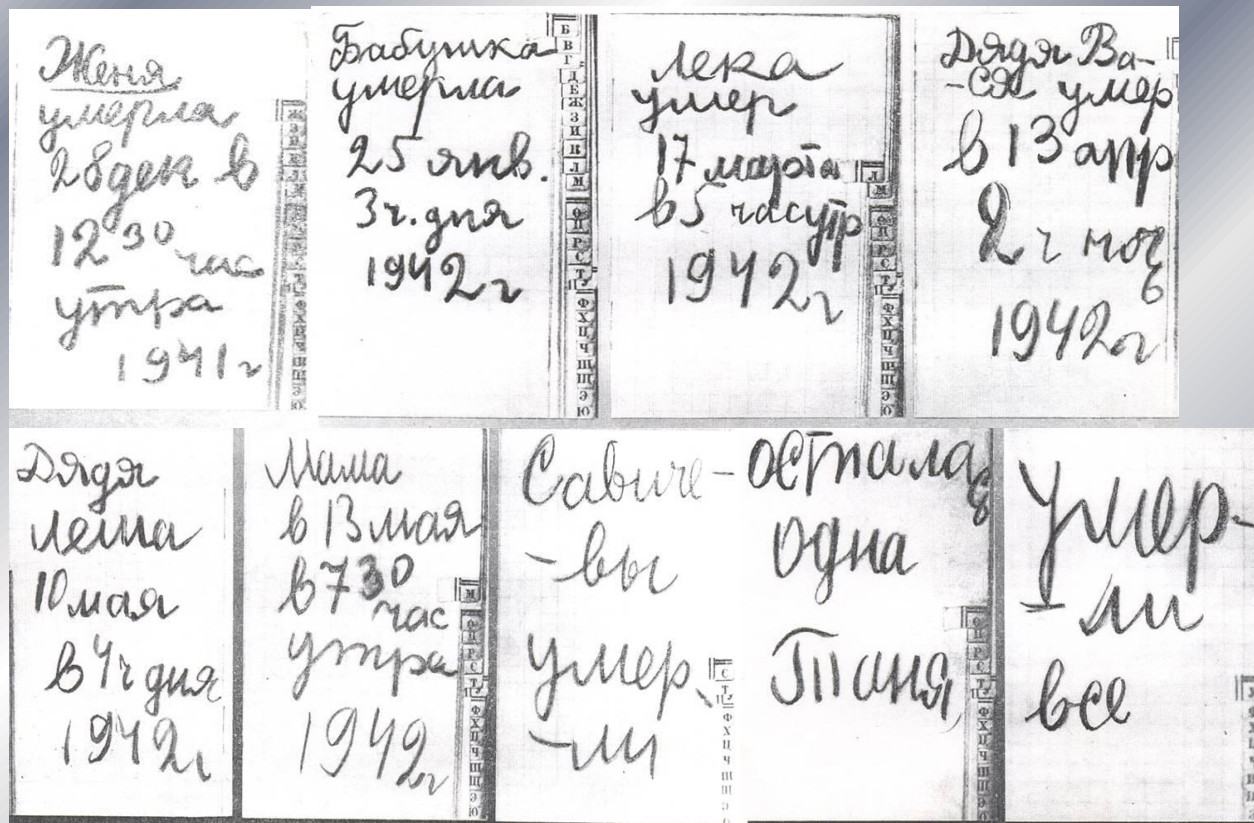 Женя
умерла
28 дек в
12 30 час
утра
1941 г
Бабушка
умерла
25 янв.
3 ч. дня
1942 г
Лека
умер
17 марта
в 5 час утр
1942 г
Дядя Ва-
-ся умер
в 13 апр
2 ч ночь
1942 г
Дядя
Леша
10 мая
в 4 ч дня
1942 г
Мама
в 13 мая
в 7 30
час
утра
1942 г
Савиче-
-вы
умер
-ли
осталась
одна
Таня
Умер-
-ли
все